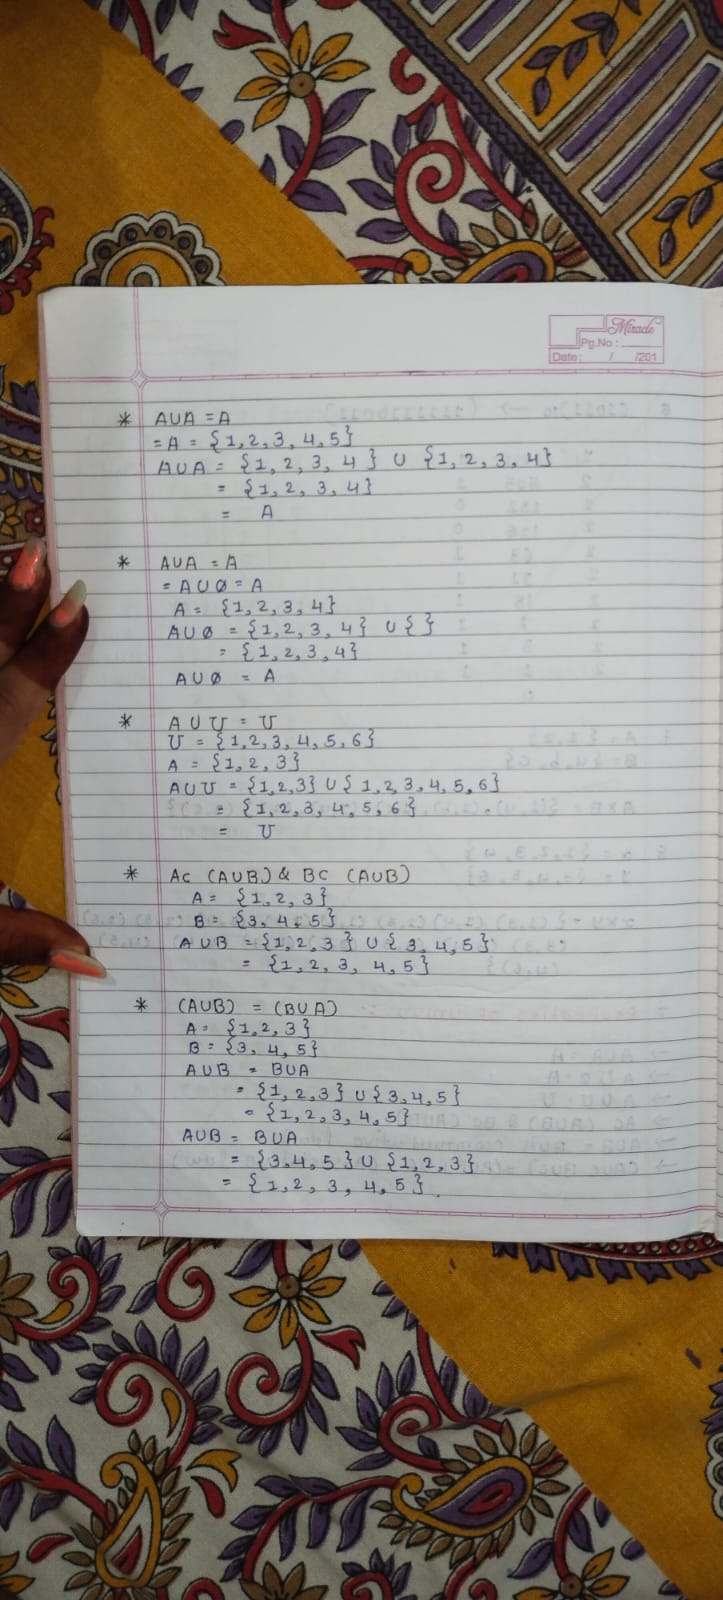 Mirade
Pg.No :
Date: / /201
* AUA = A
= A = {1,2,3,4,5}
AUA = {1,2,3,4} U {1,2,3,4}
= {1,2,3,4}
= A
* AUA = A
= AUØ = A
A = {1,2,3,4}
AUØ = {1,2,3,4} U { }
= {1,2,3,4}
AUØ = A
* AUU = U
U = {1,2,3,4,5,6}
A = {1,2,3}
AUU = {1,2,3} U {1,2,3,4,5,6}
= {1,2,3,4,5,6}
= U
* Ac (AUB) & BC (AUB)
A = {1,2,3}
B = {3,4,5}
AUB = {1,2,3} U {3,4,5}
= {1,2,3,4,5}
* (AUB) = (BUA)
A = {1,2,3}
B = {3,4,5}
AUB = BUA
= {1,2,3} U {3,4,5}
= {1,2,3,4,5}
AUB = BUA
= {3,4,5} U {1,2,3}
= {1,2,3,4,5}.